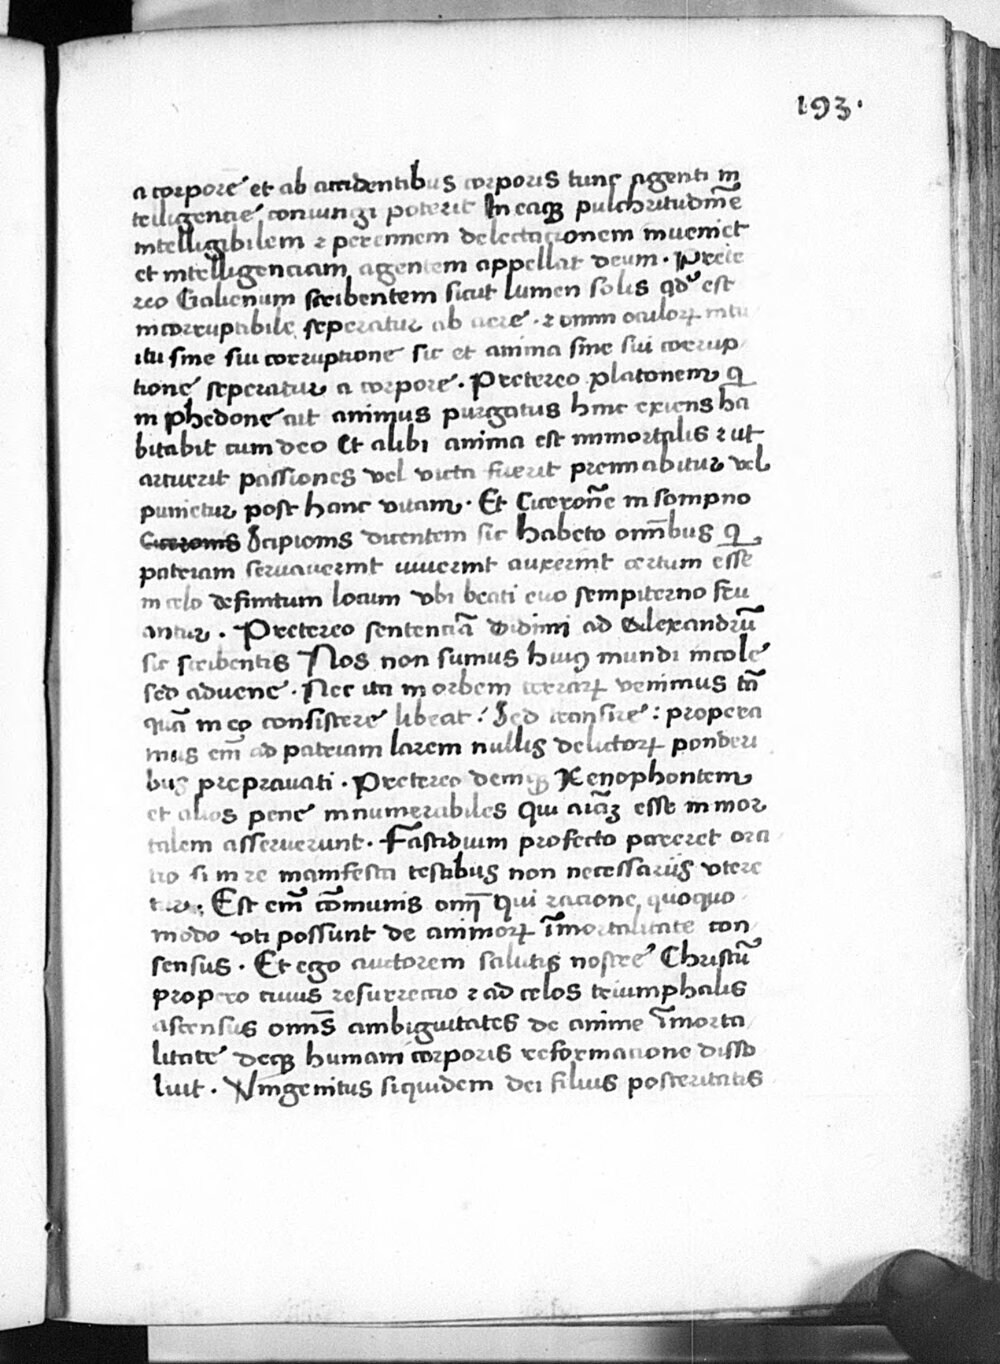 193.
a corpore et ab accidentibus corporis tunc agenti in
telligentie coniungi poterit In eaqꝫ pulchritudinē
intelligibilem ⁊ perennem delectacionem inueniet
et intelligenciam agentem appellat deum. Prete
reo Galienum scribentem sicut lumen solis qd' est
incorruptibile seperatur ab aere. ⁊ omni oculoꝝ intu
itu sine sui corruptione sic et anima sine sui corrup
tione seperatur a corpore. Pretereo platonem q
in phedone ait animus purgatus hinc exiens ha
bitabit cum deo Et alibi anima est inmortalis ⁊ ut
arcuerit passiones vel victa fuerit premiabitur vel
punietur post hanc vitam. Et Ciceronē in sompno
Ciceronis Scipionis dicentem sic habeto omībus q
patriam servauerint iuuerint auxerint certum esse
in celo definitum locum vbi beati euo sempiterno fru
antur. Pretereo sentenciā didimi ad Alexandrū
sic scribentis Nos non sumus huiꝯ mundi incole
sed aduene. Nec ita in orbem terraꝝ venimus tā
quā in eo consistere libeat: Sed transire: propera
mus em̄ ad patriam larem nullis delictoꝝ ponderi
bus prepravati. Pretereo deniqꝫ Xenophontem
et alios pene innumerabiles qui aīaꝫ esse inmor
talem asseruerunt. Fastidium profecto pareret ora
tio si in re manifesta testibus non necessariis vtere
tur. Est em̄ cōmunis omī qui racione quoquo
modo vti possunt de animoꝝ īmortalitate con
sensus. Et ego auctorem salutis nostre Christū
propero cuius resurrectio ⁊ ad celos triumphalis
ascensus omn̄s ambiguitates de anime īmorta
litate deqꝫ humani corporis reformacione disso
luit. Vnigenitus siquidem dei filius posteritatis